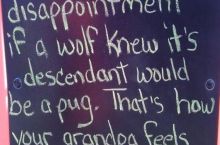 disappointment
if a wolf knew it's
descendant would
be a pug. That's how
your grandpa feels